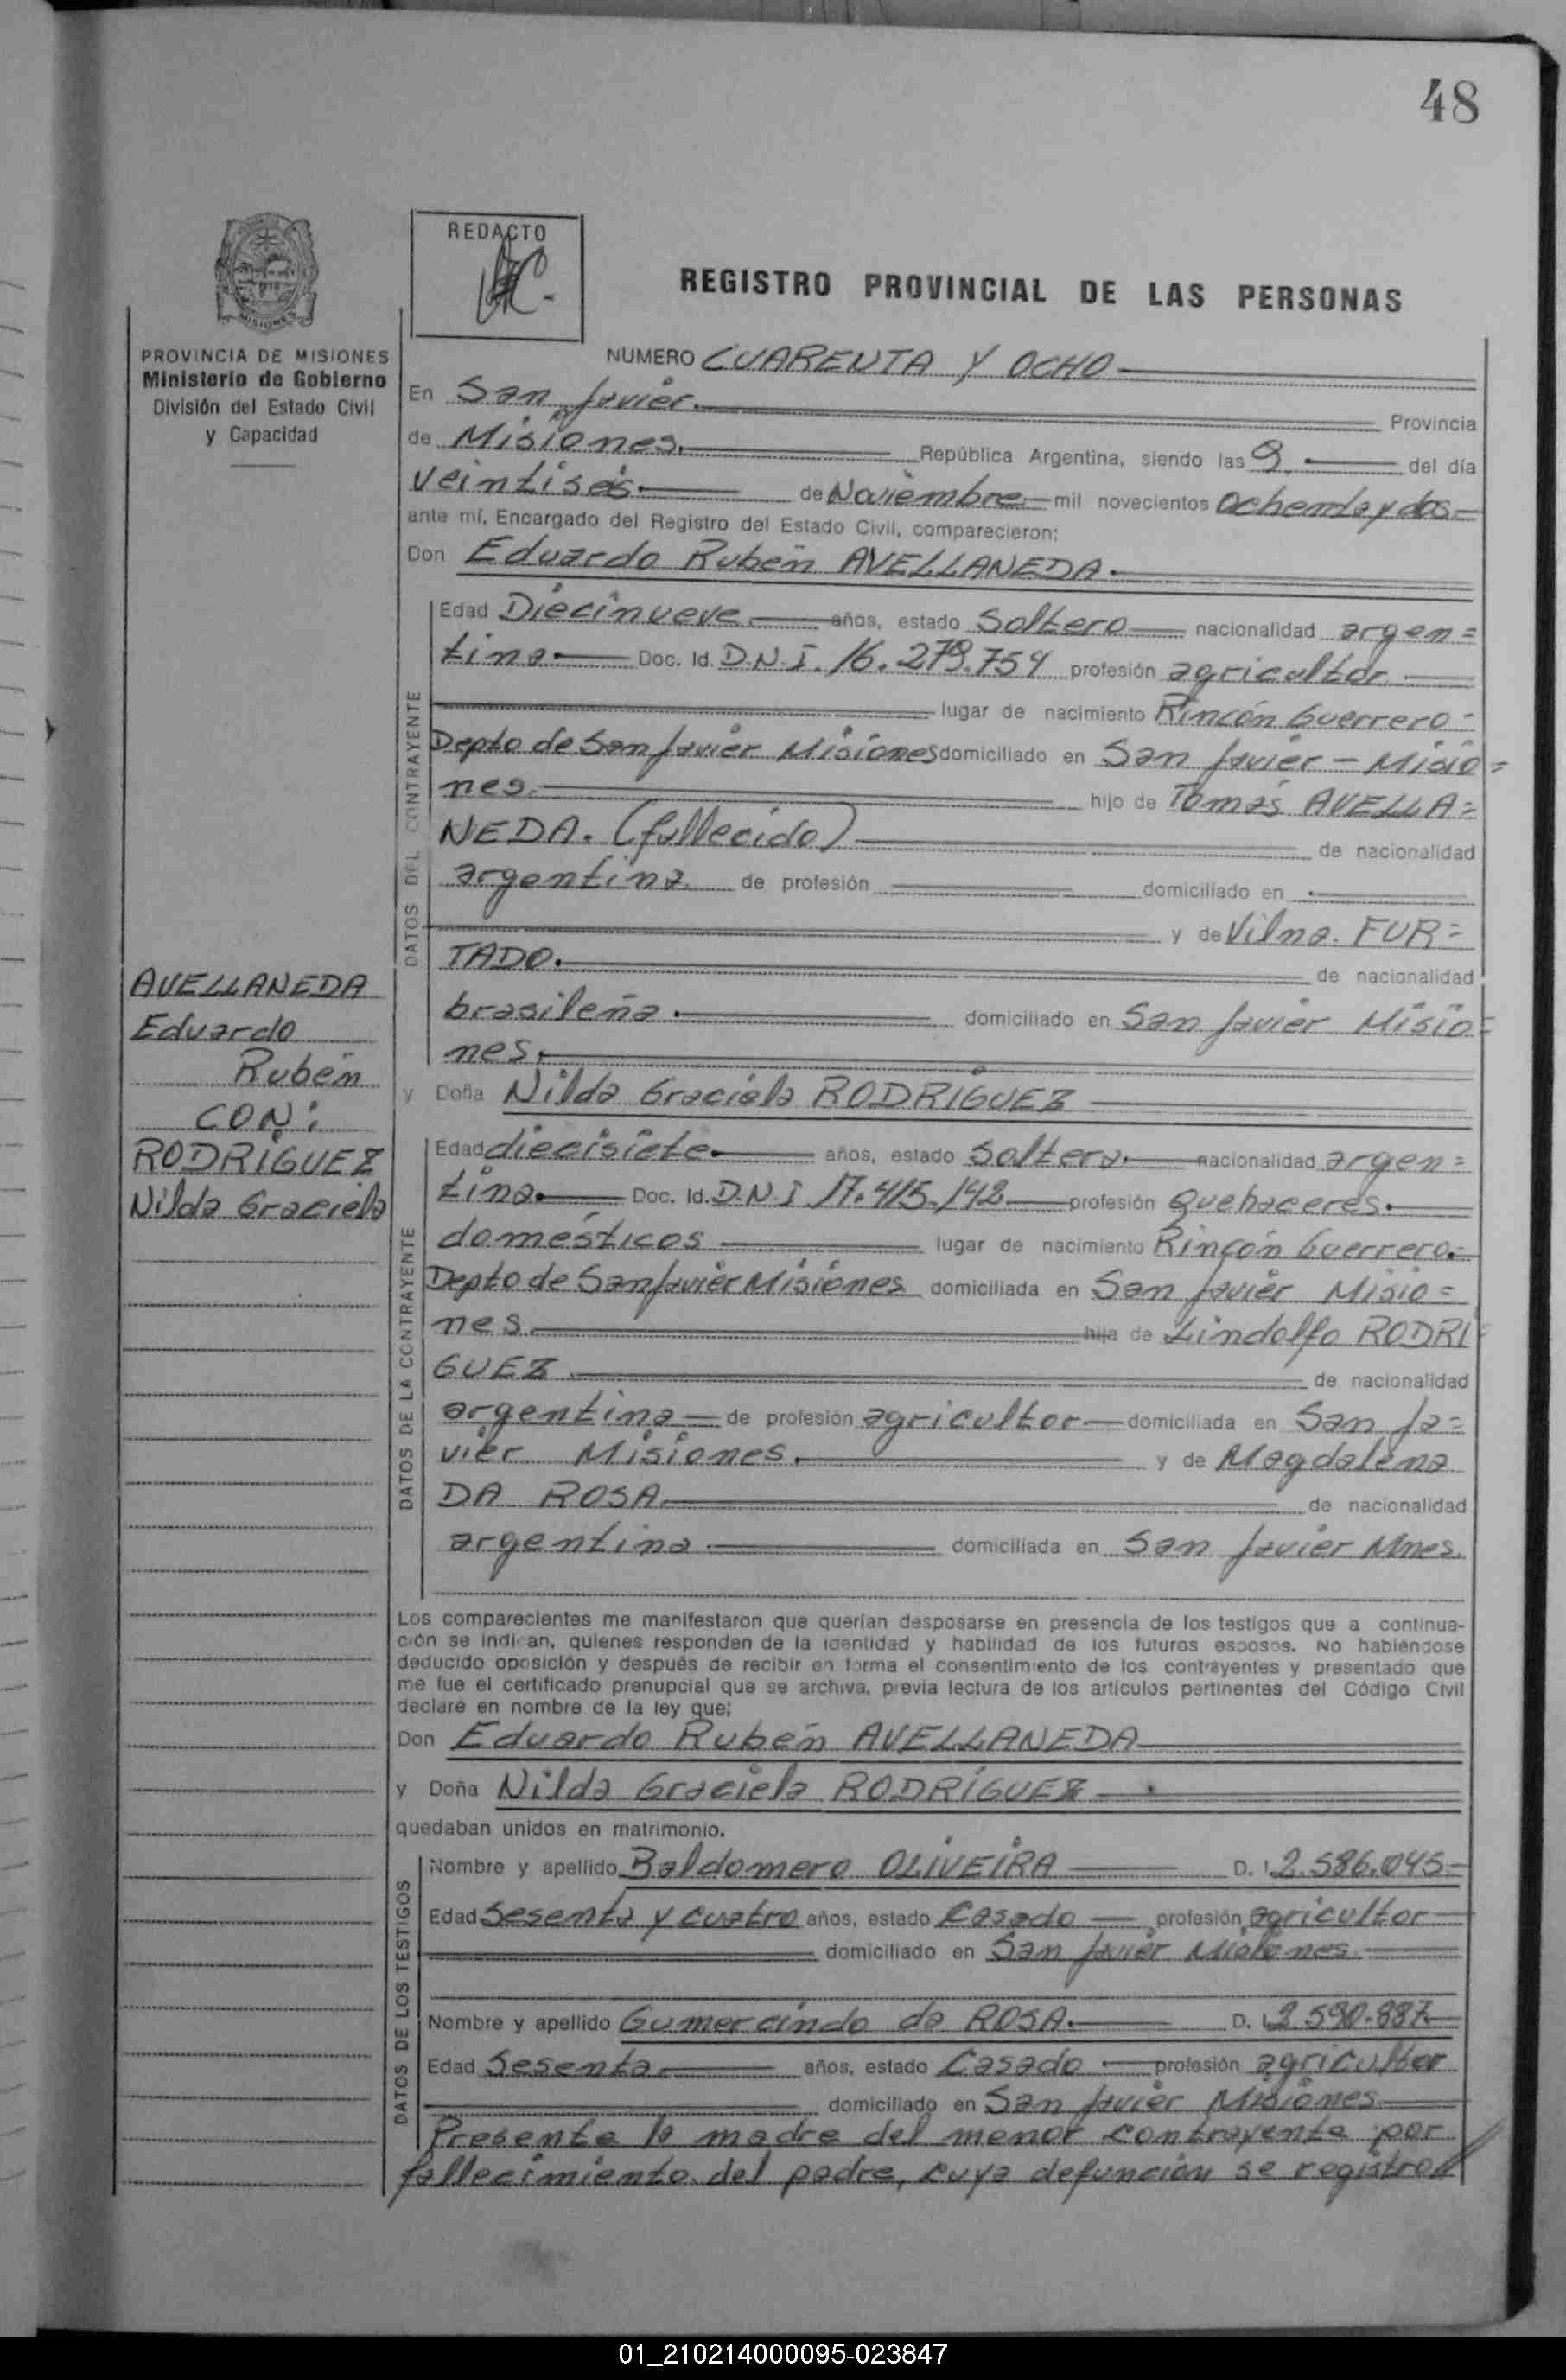 48
REDACTO
REGISTRO PROVINCIAL DE LAS PERSONAS
MISIONES
PROVINCIA DE MISIONES
Ministerio de Gobierno
División del Estado Civil
y Capacidad
NUMERO CUARENTA Y OCHO
En San Javier. Provincia
de Misiones. República Argentina, siendo las 9. del día
veintiseis de Noviembre mil novecientos ochenta y dos
ante mí, Encargado del Registro del Estado Civil, comparecieron:
Don Eduardo Rubén AVELLANEDA.
DATOS DEL CONTRAYENTE
Edad Diecinueve años, estado Soltero nacionalidad argen=
tina Doc. Id. D.N.I. 16.279.754 profesión agricultor
lugar de nacimiento Rincón Guerrero-
Depto de San Javier Misiones domiciliado en San Javier - Misio=
nes. hijo de Tomás AVELLA=
NEDA. (fallecido) de nacionalidad
argentina de profesión domiciliado en
y de Vilma. FUR=
TADO. de nacionalidad
brasileña domiciliado en San Javier Misio=
nes.
AVELLANEDA
Eduardo
Rubén
CON:
RODRÍGUEZ
Nilda Graciela
y Doña Nilda Graciela RODRÍGUEZ
DATOS DE LA CONTRAYENTE
Edad diecisiete años, estado Soltera. nacionalidad argen=
tina. Doc. Id. D.N.I 17.415.142 profesión quehaceres.
domésticos lugar de nacimiento Rincón Guerrero.-
Depto de San Javier Misiones domiciliada en San Javier Misio=
nes. hija de Lindolfo RODRI=
GUEZ de nacionalidad
argentina de profesión agricultor domiciliada en San Ja=
vier Misiones. y de Magdalena
DA ROSA de nacionalidad
argentina domiciliada en San Javier Mnes.
Los comparecientes me manifestaron que querían desposarse en presencia de los testigos que a continua-
ción se indican, quienes responden de la identidad y habilidad de los futuros esposos. No habiéndose
deducido oposición y después de recibir en forma el consentimiento de los contrayentes y presentado que
me fue el certificado prenupcial que se archiva, previa lectura de los artículos pertinentes del Código Civil
declaré en nombre de la ley que:
Don Eduardo Rubén AVELLANEDA
y Doña Nilda Graciela RODRÍGUEZ
quedaban unidos en matrimonio.
DATOS DE LOS TESTIGOS
Nombre y apellido Baldomero OLIVEIRA D. I. 2.586.045
Edad Sesenta y cuatro años, estado Casado profesión agricultor
domiciliado en San Javier Misiones.
Nombre y apellido Gumercindo da ROSA. D. I. 2.590.887
Edad Sesenta años, estado Casado profesión agricultor
domiciliado en San Javier Misiones
Presente la madre del menor contrayente por
fallecimiento del padre, cuya defunción se registró//
01_210214000095-023847